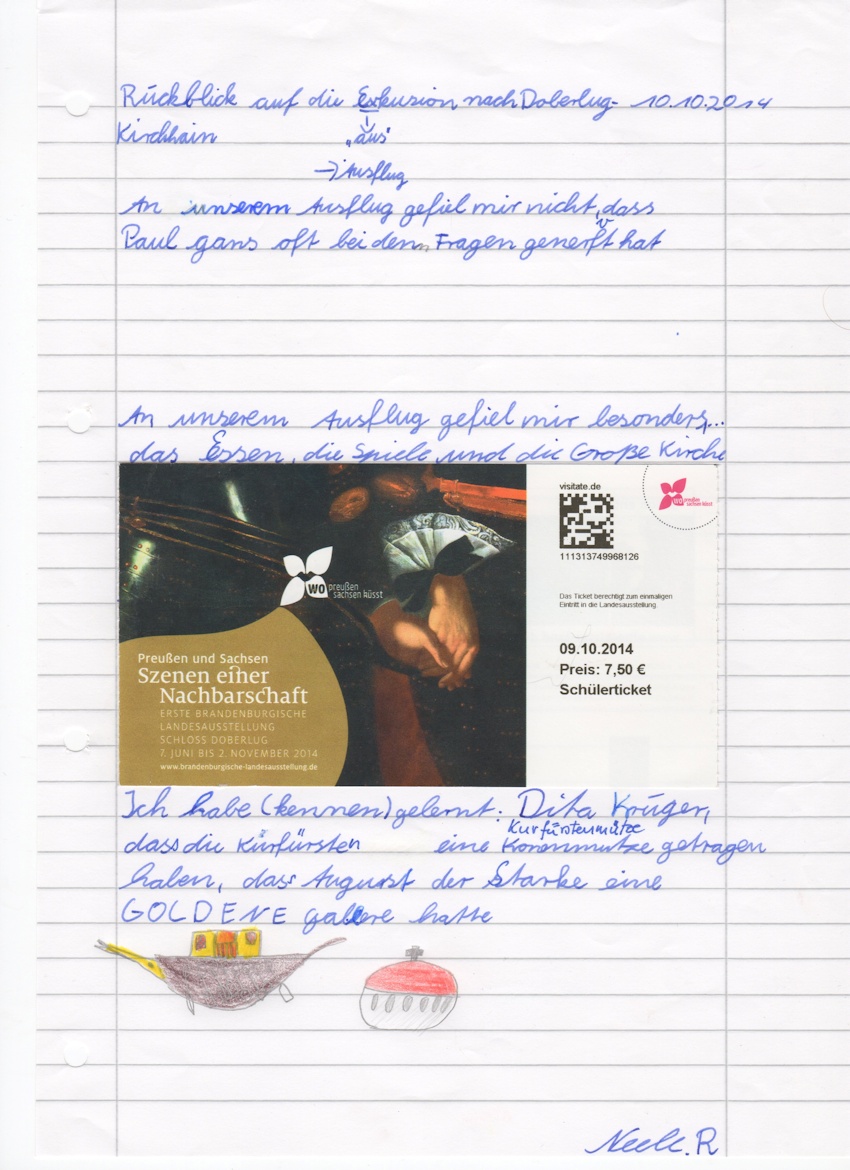 Rückblick auf die Exkursion nach Doberlug- 10.10.2014
Kirchhain
„aus"
→ Ausflug
An unserem Ausflug gefiel mir nicht, dass
Paul gans oft bei den Fragen generft hat
v
An unserem Ausflug gefiel mir besonders,...
das Essen, die Spiele und die Große Kirche
visitate.de
111313749968126
wo preußen
sachsen küsst
wo preußen
sachsen küsst
Das Ticket berechtigt zum einmaligen
Eintritt in die Landesausstellung.
09.10.2014
Preis: 7,50 €
Schülerticket
Preußen und Sachsen
Szenen einer
Nachbarschaft
ERSTE BRANDENBURGISCHE
LANDESAUSSTELLUNG
SCHLOSS DOBERLUG
7. JUNI BIS 2. NOVEMBER 2014
www.brandenburgische-landesausstellung.de
Ich habe (kennen)gelernt: Dita Krüger,
Kurfürstenmütze
dass die Kürfürsten eine Korenmutze getragen
haben, dass August der Starke eine
GOLDENE galere hatte
Neele. R